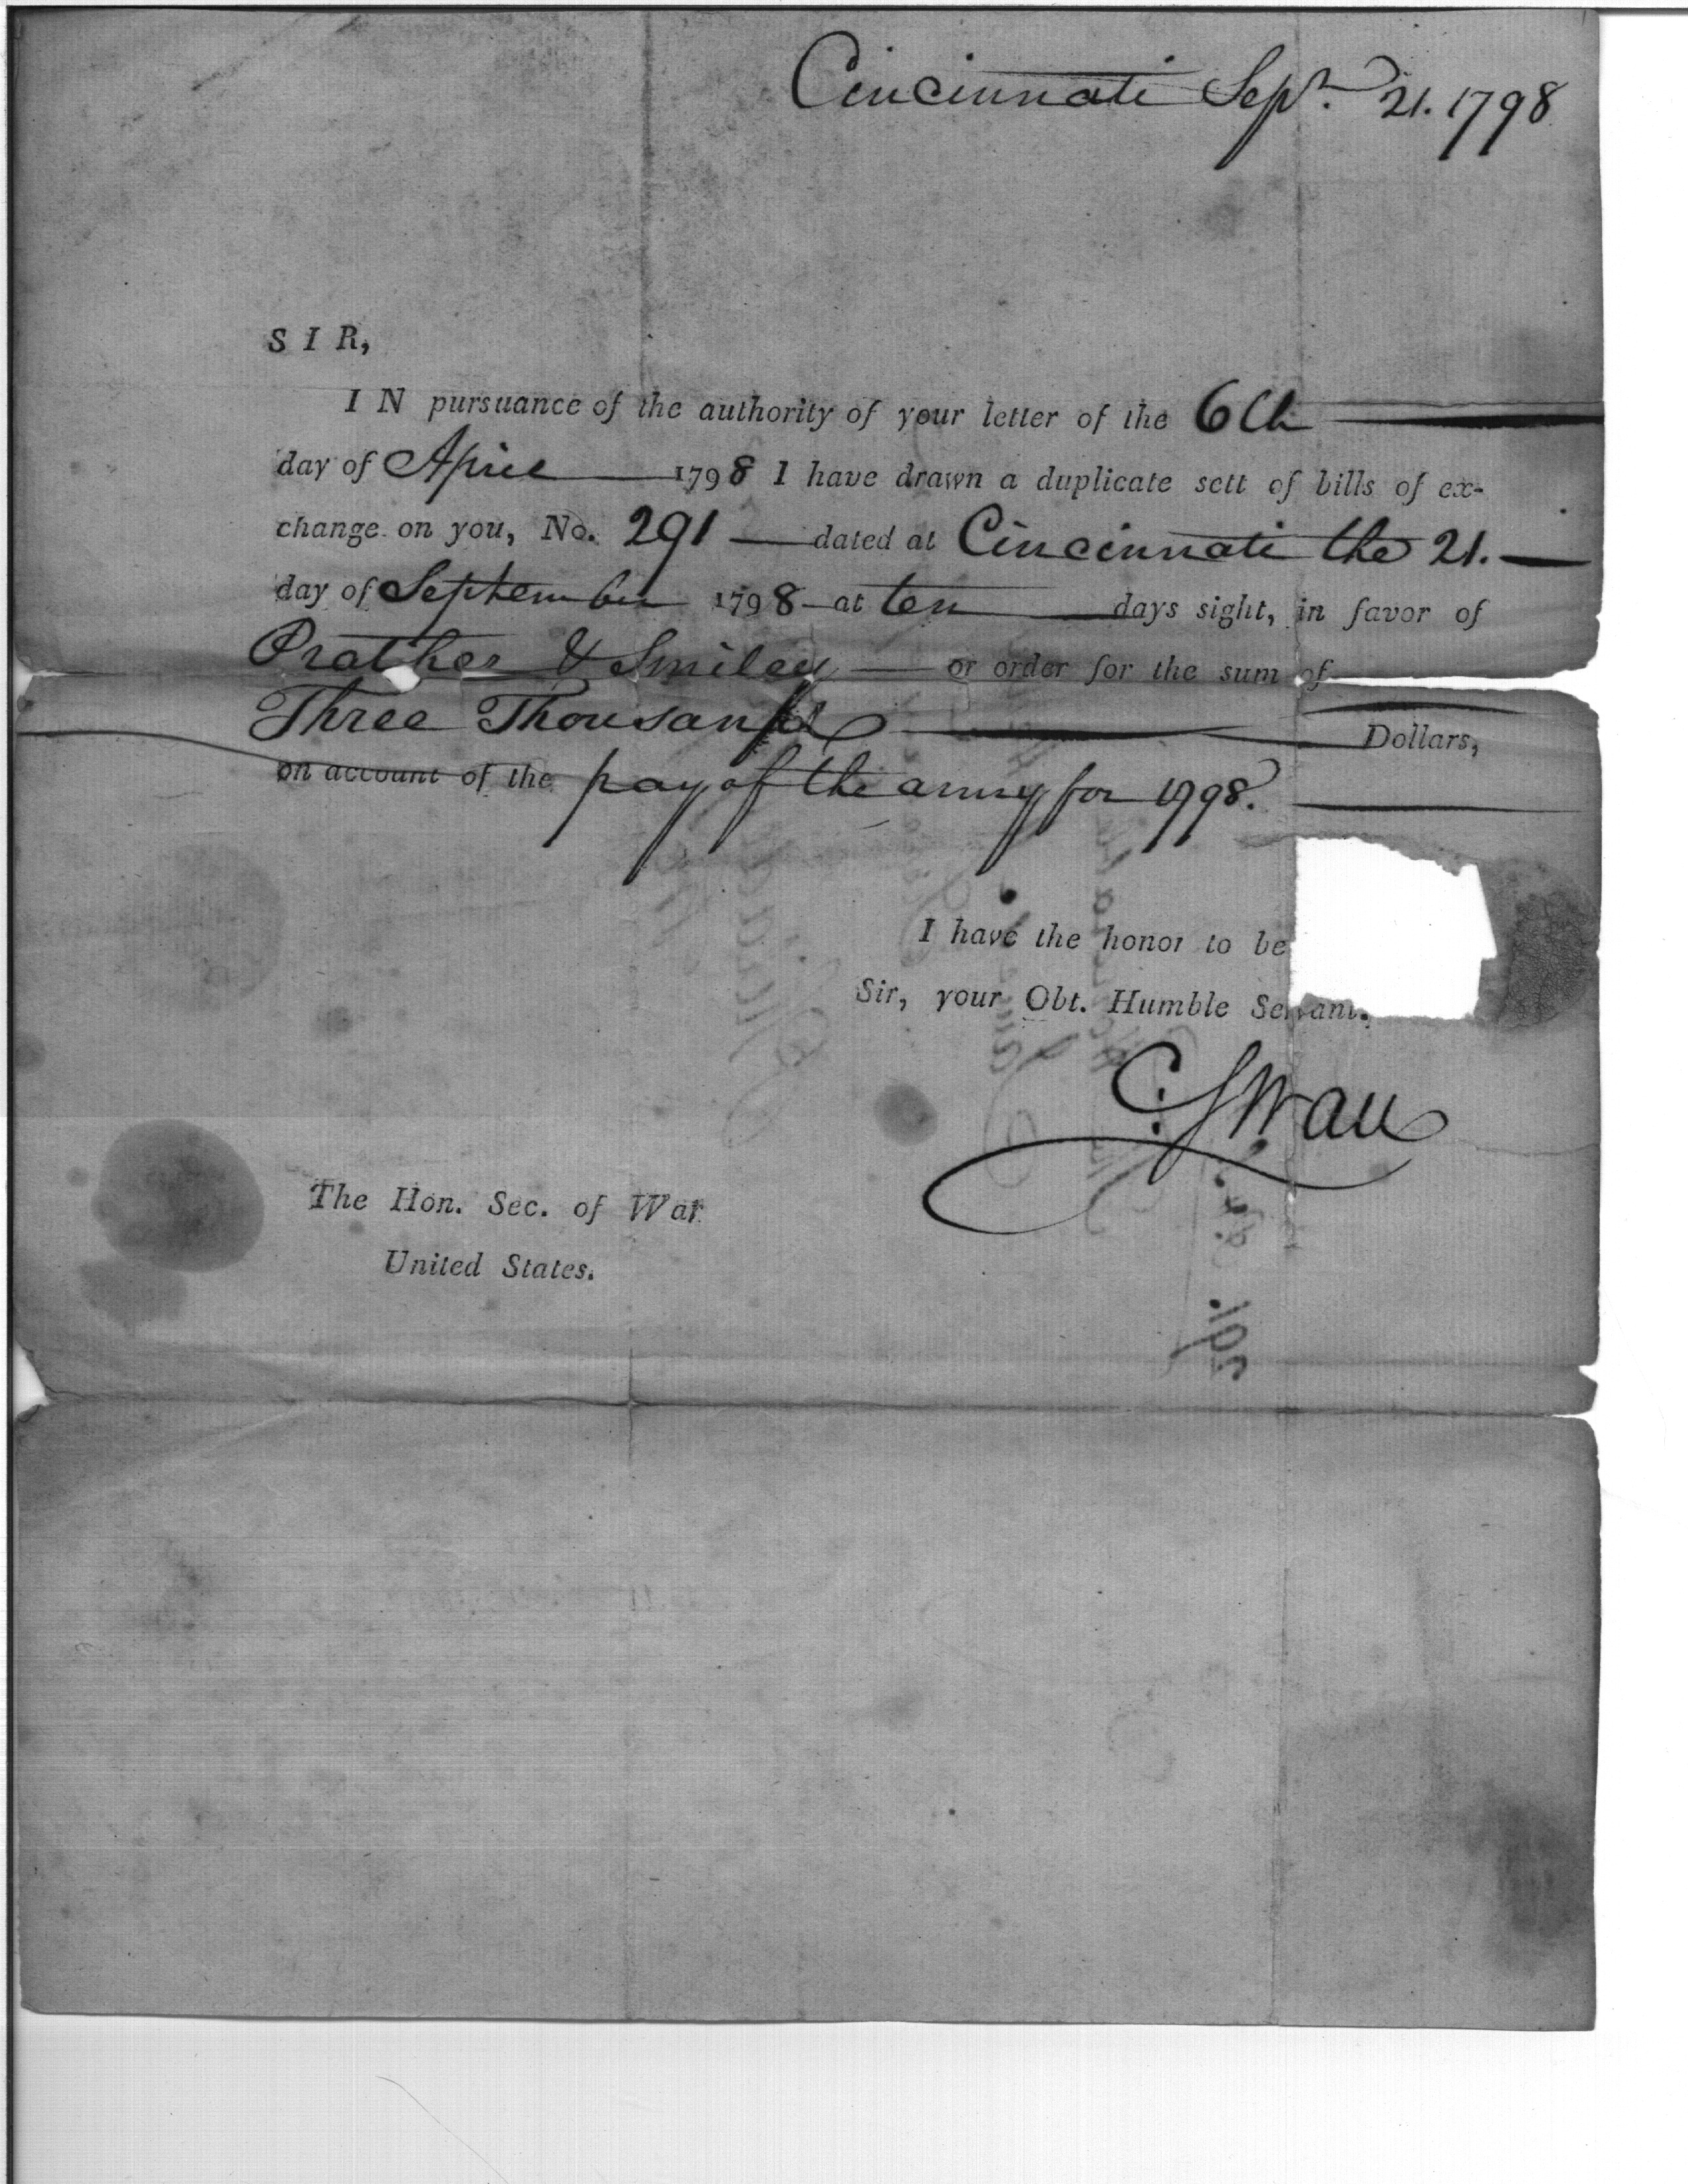 Cincinnati Sept. 21. 1798
SIR,
IN pursuance of the authority of your letter of the 6th
day of April 1798 I have drawn a duplicate sett of bills of ex-
change on you, No. 291 dated at Cincinnati the 21.
day of September 1798 at ten days sight, in favor of
Prather & Smiley or order for the sum of
Three Thousand Dollars,
on account of the pay of the army for 1798.
I have the honor to be
Sir, your Obt. Humble Servant.
C: Swan
The Hon. Sec. of War
United States.